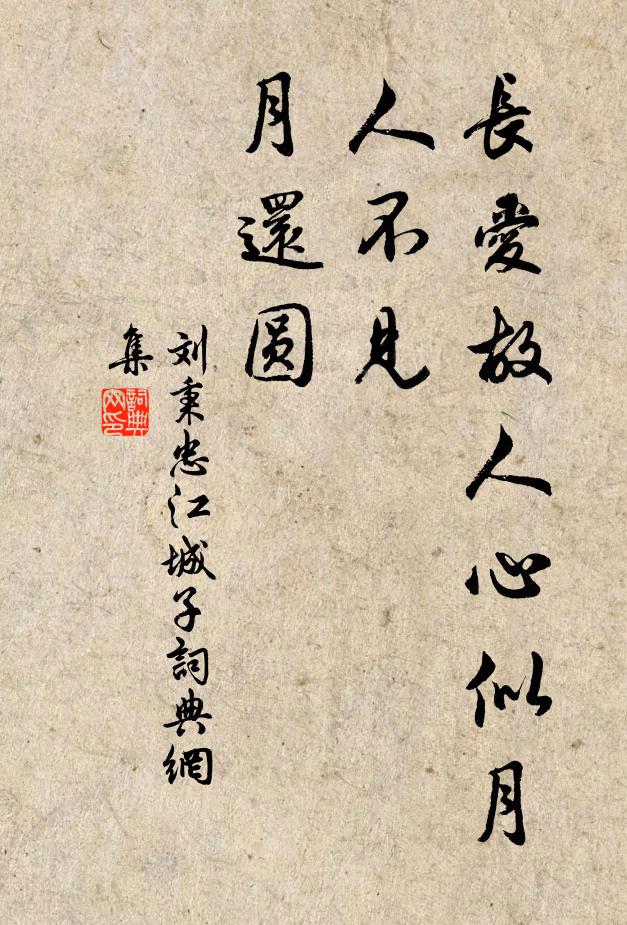 長愛故人心似月
人不見
月還圆
刘秉忠江城子詞典網
集
詞典
网印